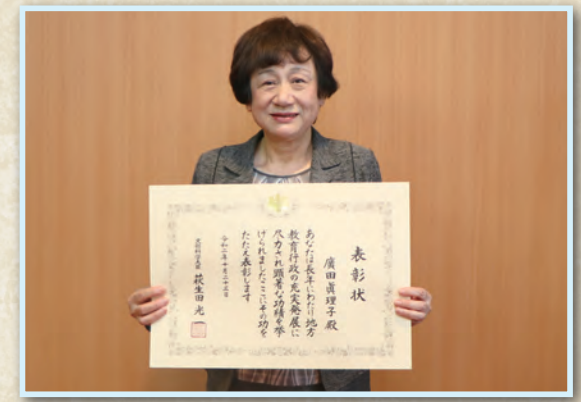 表彰状
廣田眞理子殿
あなたは長年にわたり地方
教育行政の充実発展に
尽力され顕著な功績を挙
げられましたここにその功を
たたえ表彰します
令和二年十月二十三日
文部科学大臣 萩生田光一